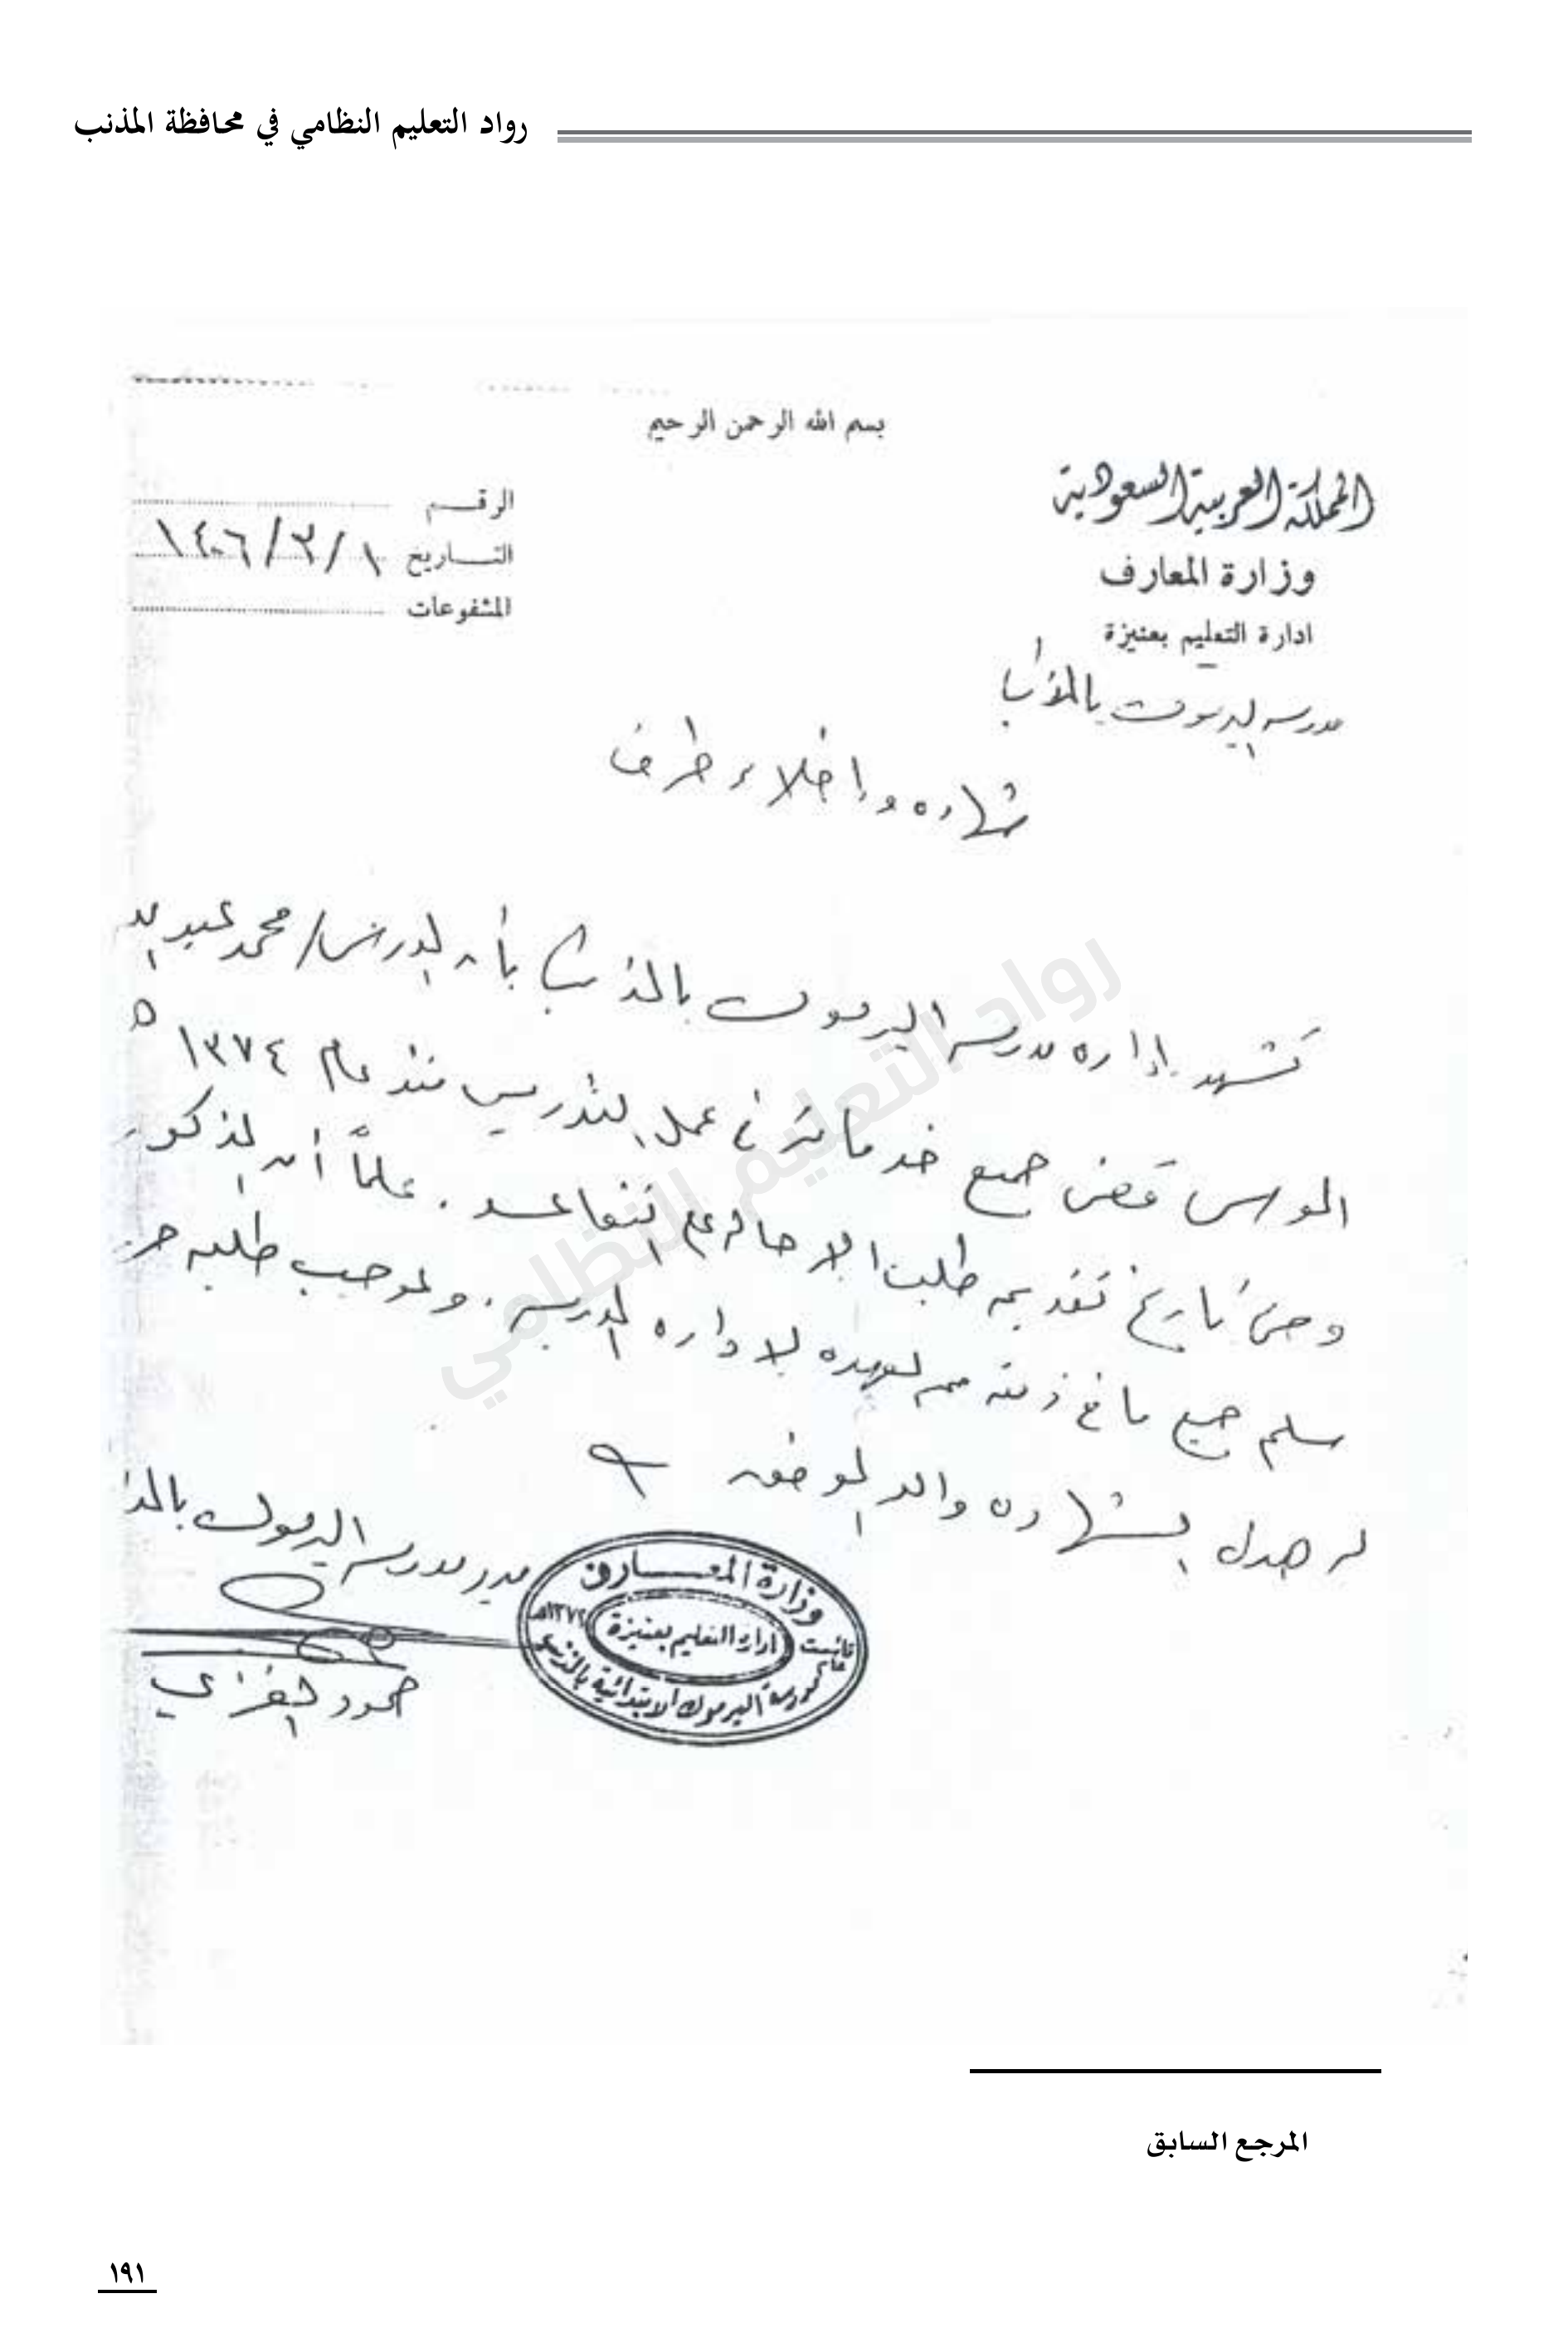 رواد التعليم النظامي في محافظة المذنب
بسم الله الرحمن الرحيم
المملكة العربية السعودية
وزارة المعارف
ادارة التعليم بعنيزة
مدرسه اليرموك بالمذنب
الرقـــم
التـــاريخ ١/٣/١٤٠٦
المشفوعات
شهاده وإخلاء طرف
تشهد إداره مدرسه اليرموك بالمذنب بأن المدرس/ محمد عبد الله
قضى جميع خدماته في عمل التدريس منذ عام ١٣٧٤ ه
وحتى تاريخ تقديمه طلب الإحاله على التقاعد . علماً أن المذكور
سلم جميع ما في ذمته من لعهده لإداره المدرسه . وبموجب طلبه
له هذه الشهاده والله الموفق
مدير مدرسه اليرموك بالمذ
حمود
وزارة المعـــارف
ادارة التعليم بعنيزة
تأسست عام ١٣٧٢هـ
مدرسة اليرموك الابتدائية بالمذنب
رواد التعليم النظامي
المرجع السابق
١٩١